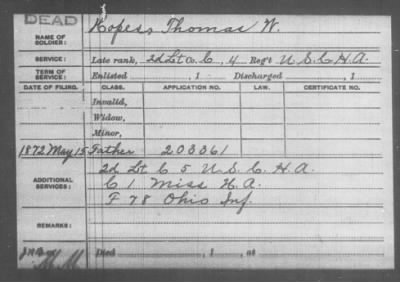 DEAD
NAME OF SOLDIER: Hopes, Thomas W.
SERVICE: Late rank, 2d Lt Co. C, 4 Reg't U.S.C.H.A.
TERM OF SERVICE: Enlisted , 1 Discharged , 1
DATE OF FILING. CLASS. APPLICATION NO. LAW. CERTIFICATE NO.
Invalid,
Widow,
Minor,
1872 May 15 Father 203361
ADDITIONAL SERVICES: 2d Lt C 5 U.S.C.H.A.
C 1 Miss H.A.
F 78 Ohio Inf.
REMARKS:
Died , 1 , at